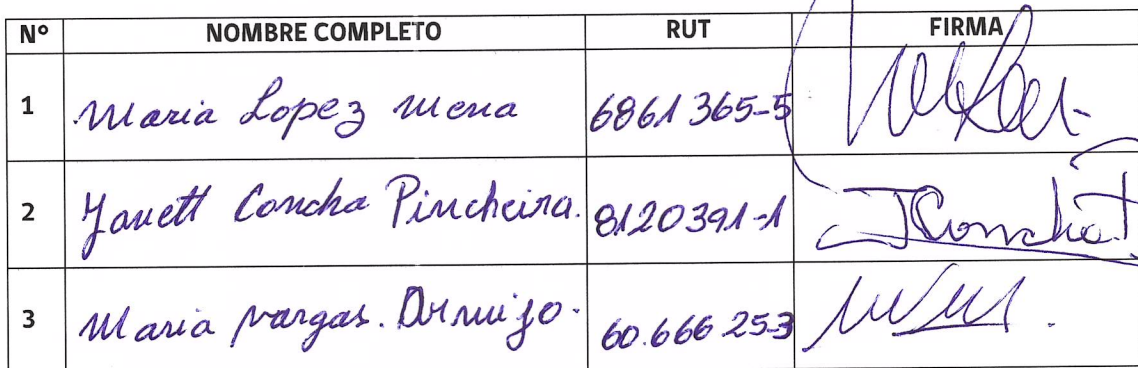 Nº NOMBRE COMPLETO RUT FIRMA
1 Maria Lopez Mena 6861365-5
2 Yanett Concha Pincheira. 8120391-1 JConcha
3 Maria vargas. Armijo. 60.666 253